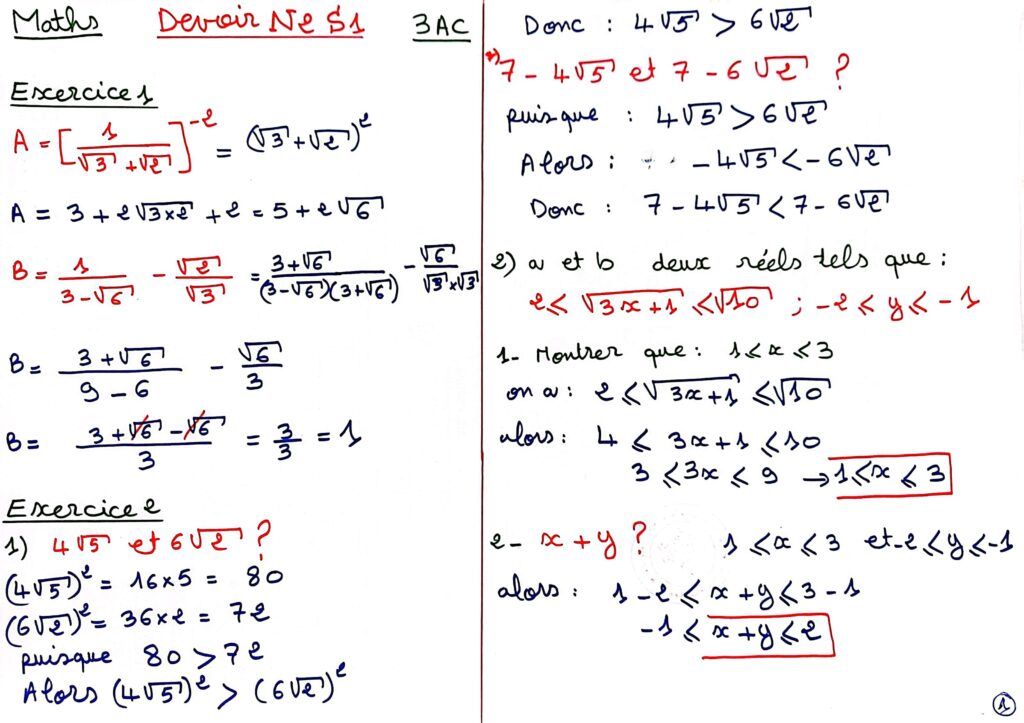 Maths Devoir N2 S1 3AC
Exercice 1
A = [1/(√3 + √2)]⁻² = (√3 + √2)²
A = 3 + 2√(3×2) + 2 = 5 + 2√6
B = 1/(3 - √6) - √2/√3 = (3 + √6)/((3 - √6)(3 + √6)) - √6/(√3 × √3)
B = (3 + √6)/(9 - 6) - √6/3
B = (3 + √6 - √6)/3 = 3/3 = 1
Exercice 2
1) 4√5 et 6√2 ?
(4√5)² = 16×5 = 80
(6√2)² = 36×2 = 72
puisque 80 > 72
Alors (4√5)² > (6√2)²
Donc : 4√5 > 6√2
*) 7 - 4√5 et 7 - 6√2 ?
puisque : 4√5 > 6√2
Alors : -4√5 < -6√2
Donc : 7 - 4√5 < 7 - 6√2
2) a et b deux réels tels que :
2 ⩽ √(3x+1) ⩽ √10 ; -2 ⩽ y ⩽ -1
1- Montrer que : 1 ⩽ x ⩽ 3
on a : 2 ⩽ √(3x+1) ⩽ √10
alors : 4 ⩽ 3x+1 ⩽ 10
3 ⩽ 3x ⩽ 9 → 1 ⩽ x ⩽ 3
2- x + y ? 1 ⩽ x ⩽ 3 et -2 ⩽ y ⩽ -1
alors : 1 - 2 ⩽ x + y ⩽ 3 - 1
-1 ⩽ x + y ⩽ 2
1